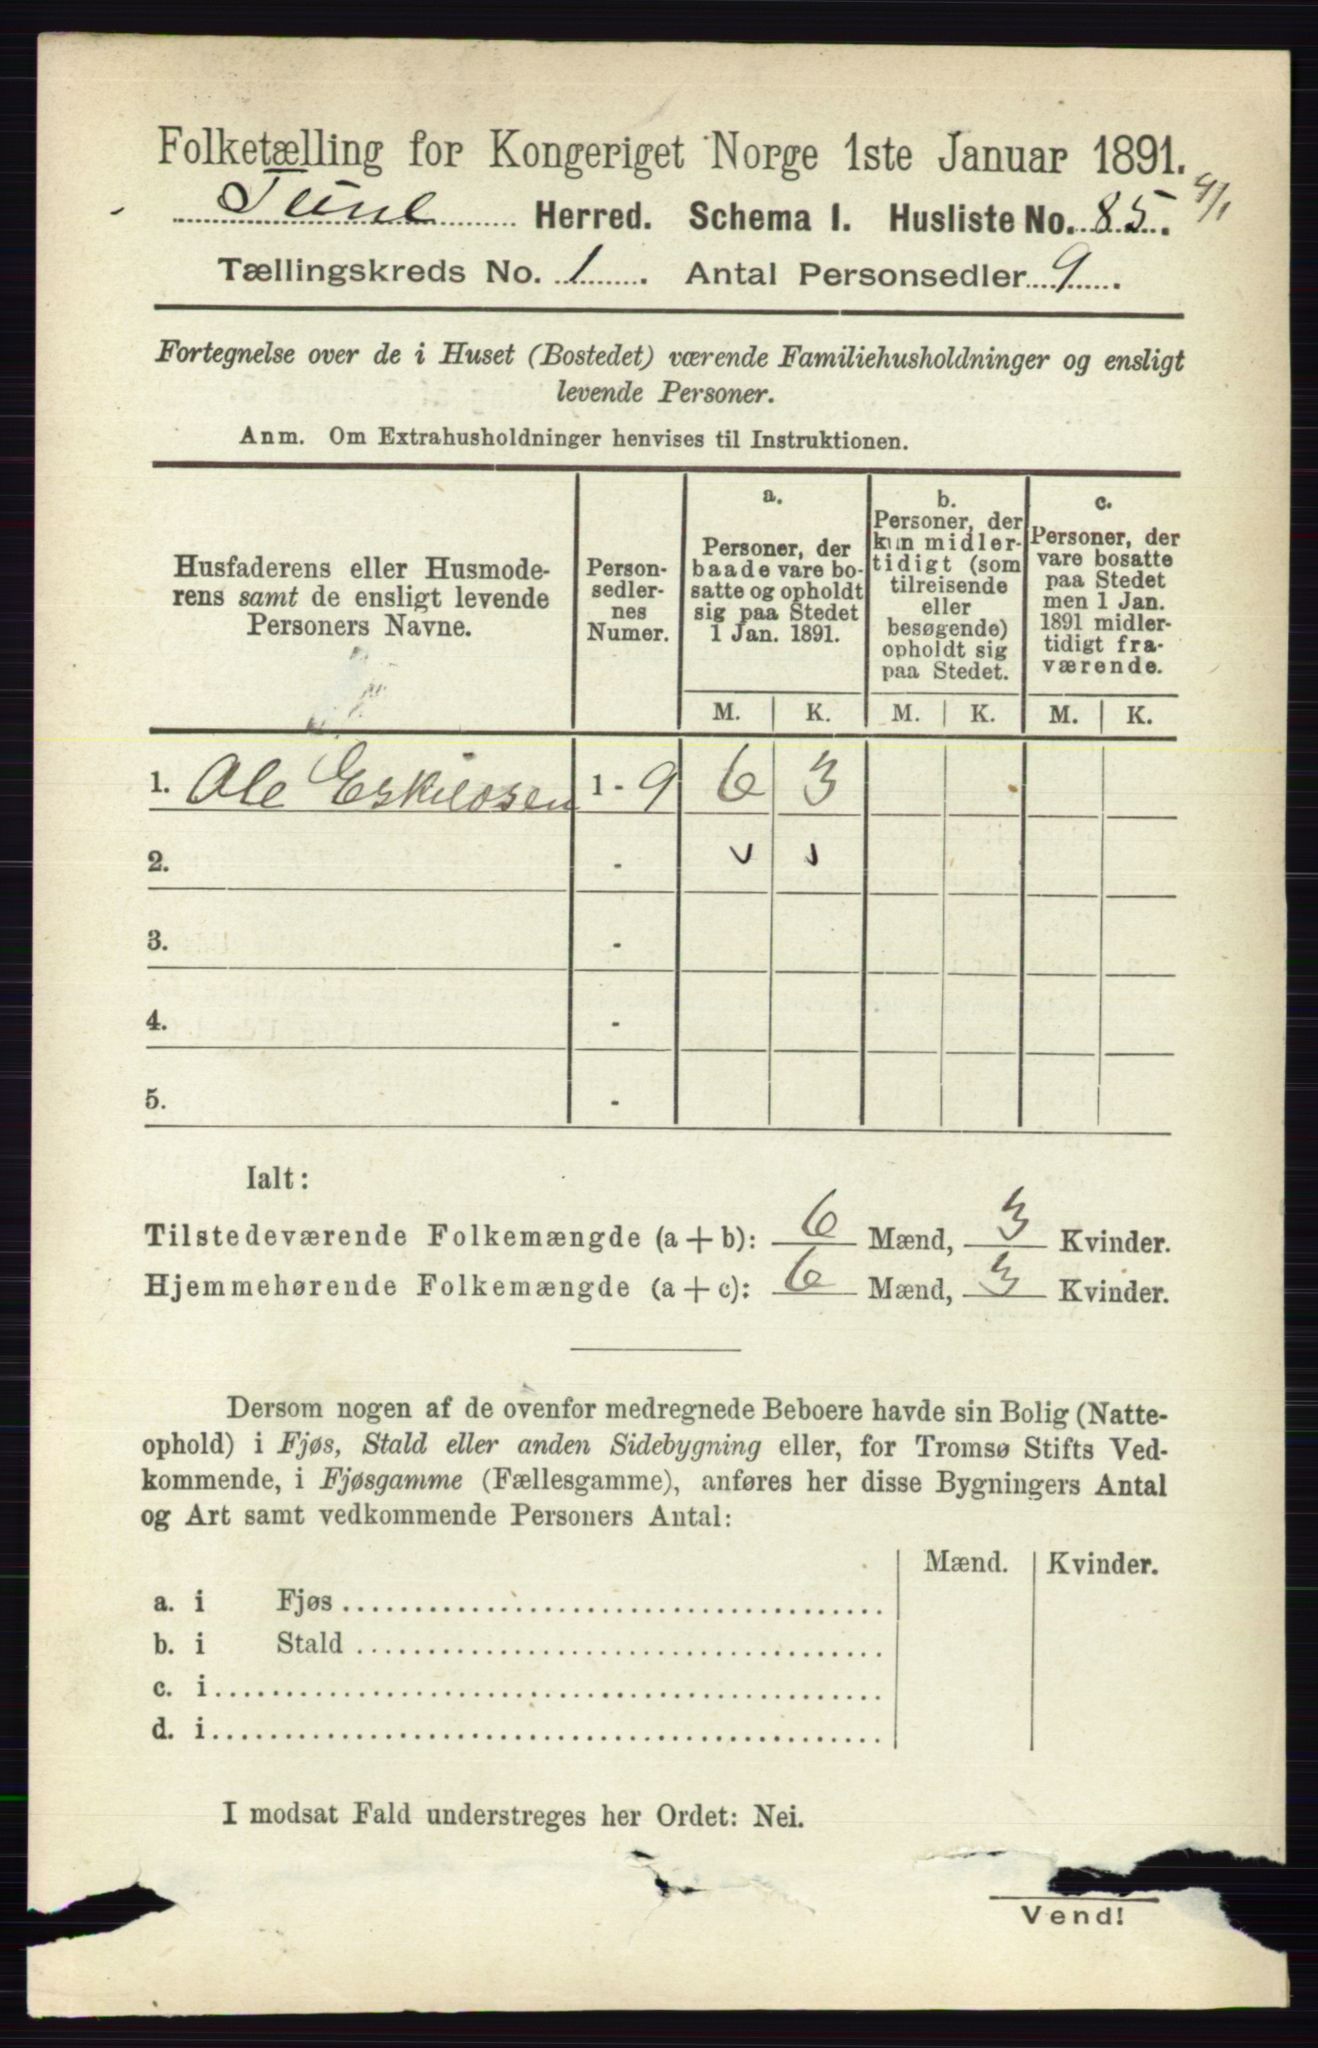 Folketælling for Kongeriget Norge 1ste Januar 1891.
Tune Herred. Schema I. Husliste No. 85. 4/1
Tællingskreds No. 1. Antal Personsedler 9.
Fortegnelse over de i Huset (Bostedet) værende Familiehusholdninger og ensligt
levende Personer.
Anm. Om Extrahusholdninger henvises til Instruktionen.
Husfaderens eller Husmode-
rens samt de ensligt levende
Personers Navne.
Person-
sedler-
nes
Numer.
a.
Personer, der
baade vare bo-
satte og opholdt
sig paa Stedet
1 Jan. 1891.
b.
Personer, der
kun midler-
tidigt (som
tilreisende
eller
besøgende)
opholdt sig
paa Stedet.
c.
Personer, der
vare bosatte
paa Stedet
men 1 Jan.
1891 midler-
tidigt fra-
værende.
M. K. M. K. M. K.
1. Ole Eskildsen 1 - 9 6 3
2. -
3. -
4. -
5. -
Ialt:
Tilstedeværende Folkemængde (a + b): 6 Mænd, 3 Kvinder.
Hjemmehørende Folkemængde (a + c): 6 Mænd, 3 Kvinder.
Dersom nogen af de ovenfor medregnede Beboere havde sin Bolig (Natte-
ophold) i Fjøs, Stald eller anden Sidebygning eller, for Tromsø Stifts Ved-
kommende, i Fjøsgamme (Fællesgamme), anføres her disse Bygningers Antal
og Art samt vedkommende Personers Antal:
Mænd. Kvinder.
a. i Fjøs
b. i Stald
c. i
d. i
I modsat Fald understreges her Ordet: Nei.
Vend!